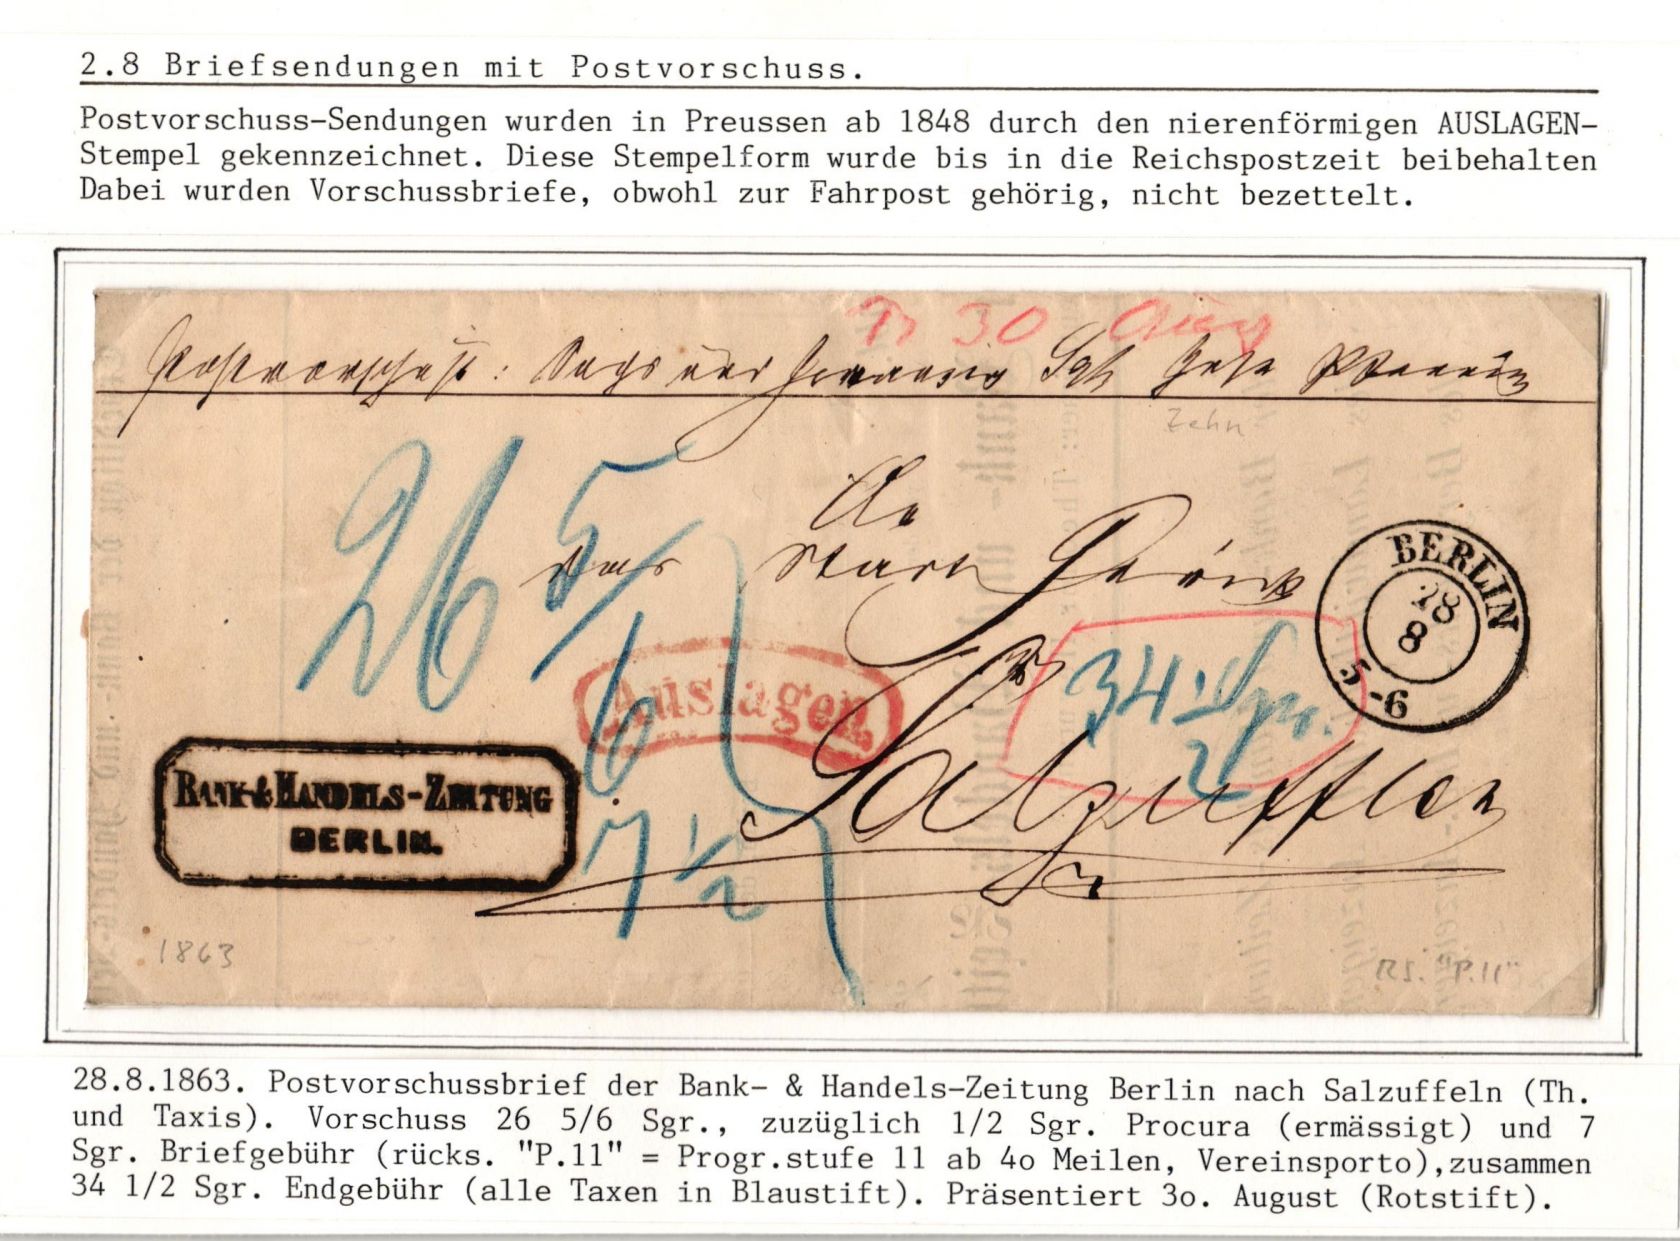 2.8 Briefsendungen mit Postvorschuss.
Postvorschuss-Sendungen wurden in Preussen ab 1848 durch den nierenförmigen AUSLAGEN-
Stempel gekennzeichnet. Diese Stempelform wurde bis in die Reichspostzeit beibehalten
Dabei wurden Vorschussbriefe, obwohl zur Fahrpost gehörig, nicht bezettelt.
30 Aug
Postvorschuß: Sechs und zwanzig Sgr Zehn Pfennig
Zehn
26 5/6
An
das
BERLIN
28
8
5-6
Auslagen
34 1/2 Sgr.
Salzuffeln
BANK- & HANDELS-ZEITUNG
BERLIN.
7 1/2
1863
RS. "P.11"
28.8.1863. Postvorschussbrief der Bank- & Handels-Zeitung Berlin nach Salzuffeln (Th.
und Taxis). Vorschuss 26 5/6 Sgr., zuzüglich 1/2 Sgr. Procura (ermässigt) und 7
Sgr. Briefgebühr (rücks. "P.11" = Progr.stufe 11 ab 4o Meilen, Vereinsporto),zusammen
34 1/2 Sgr. Endgebühr (alle Taxen in Blaustift). Präsentiert 3o. August (Rotstift).